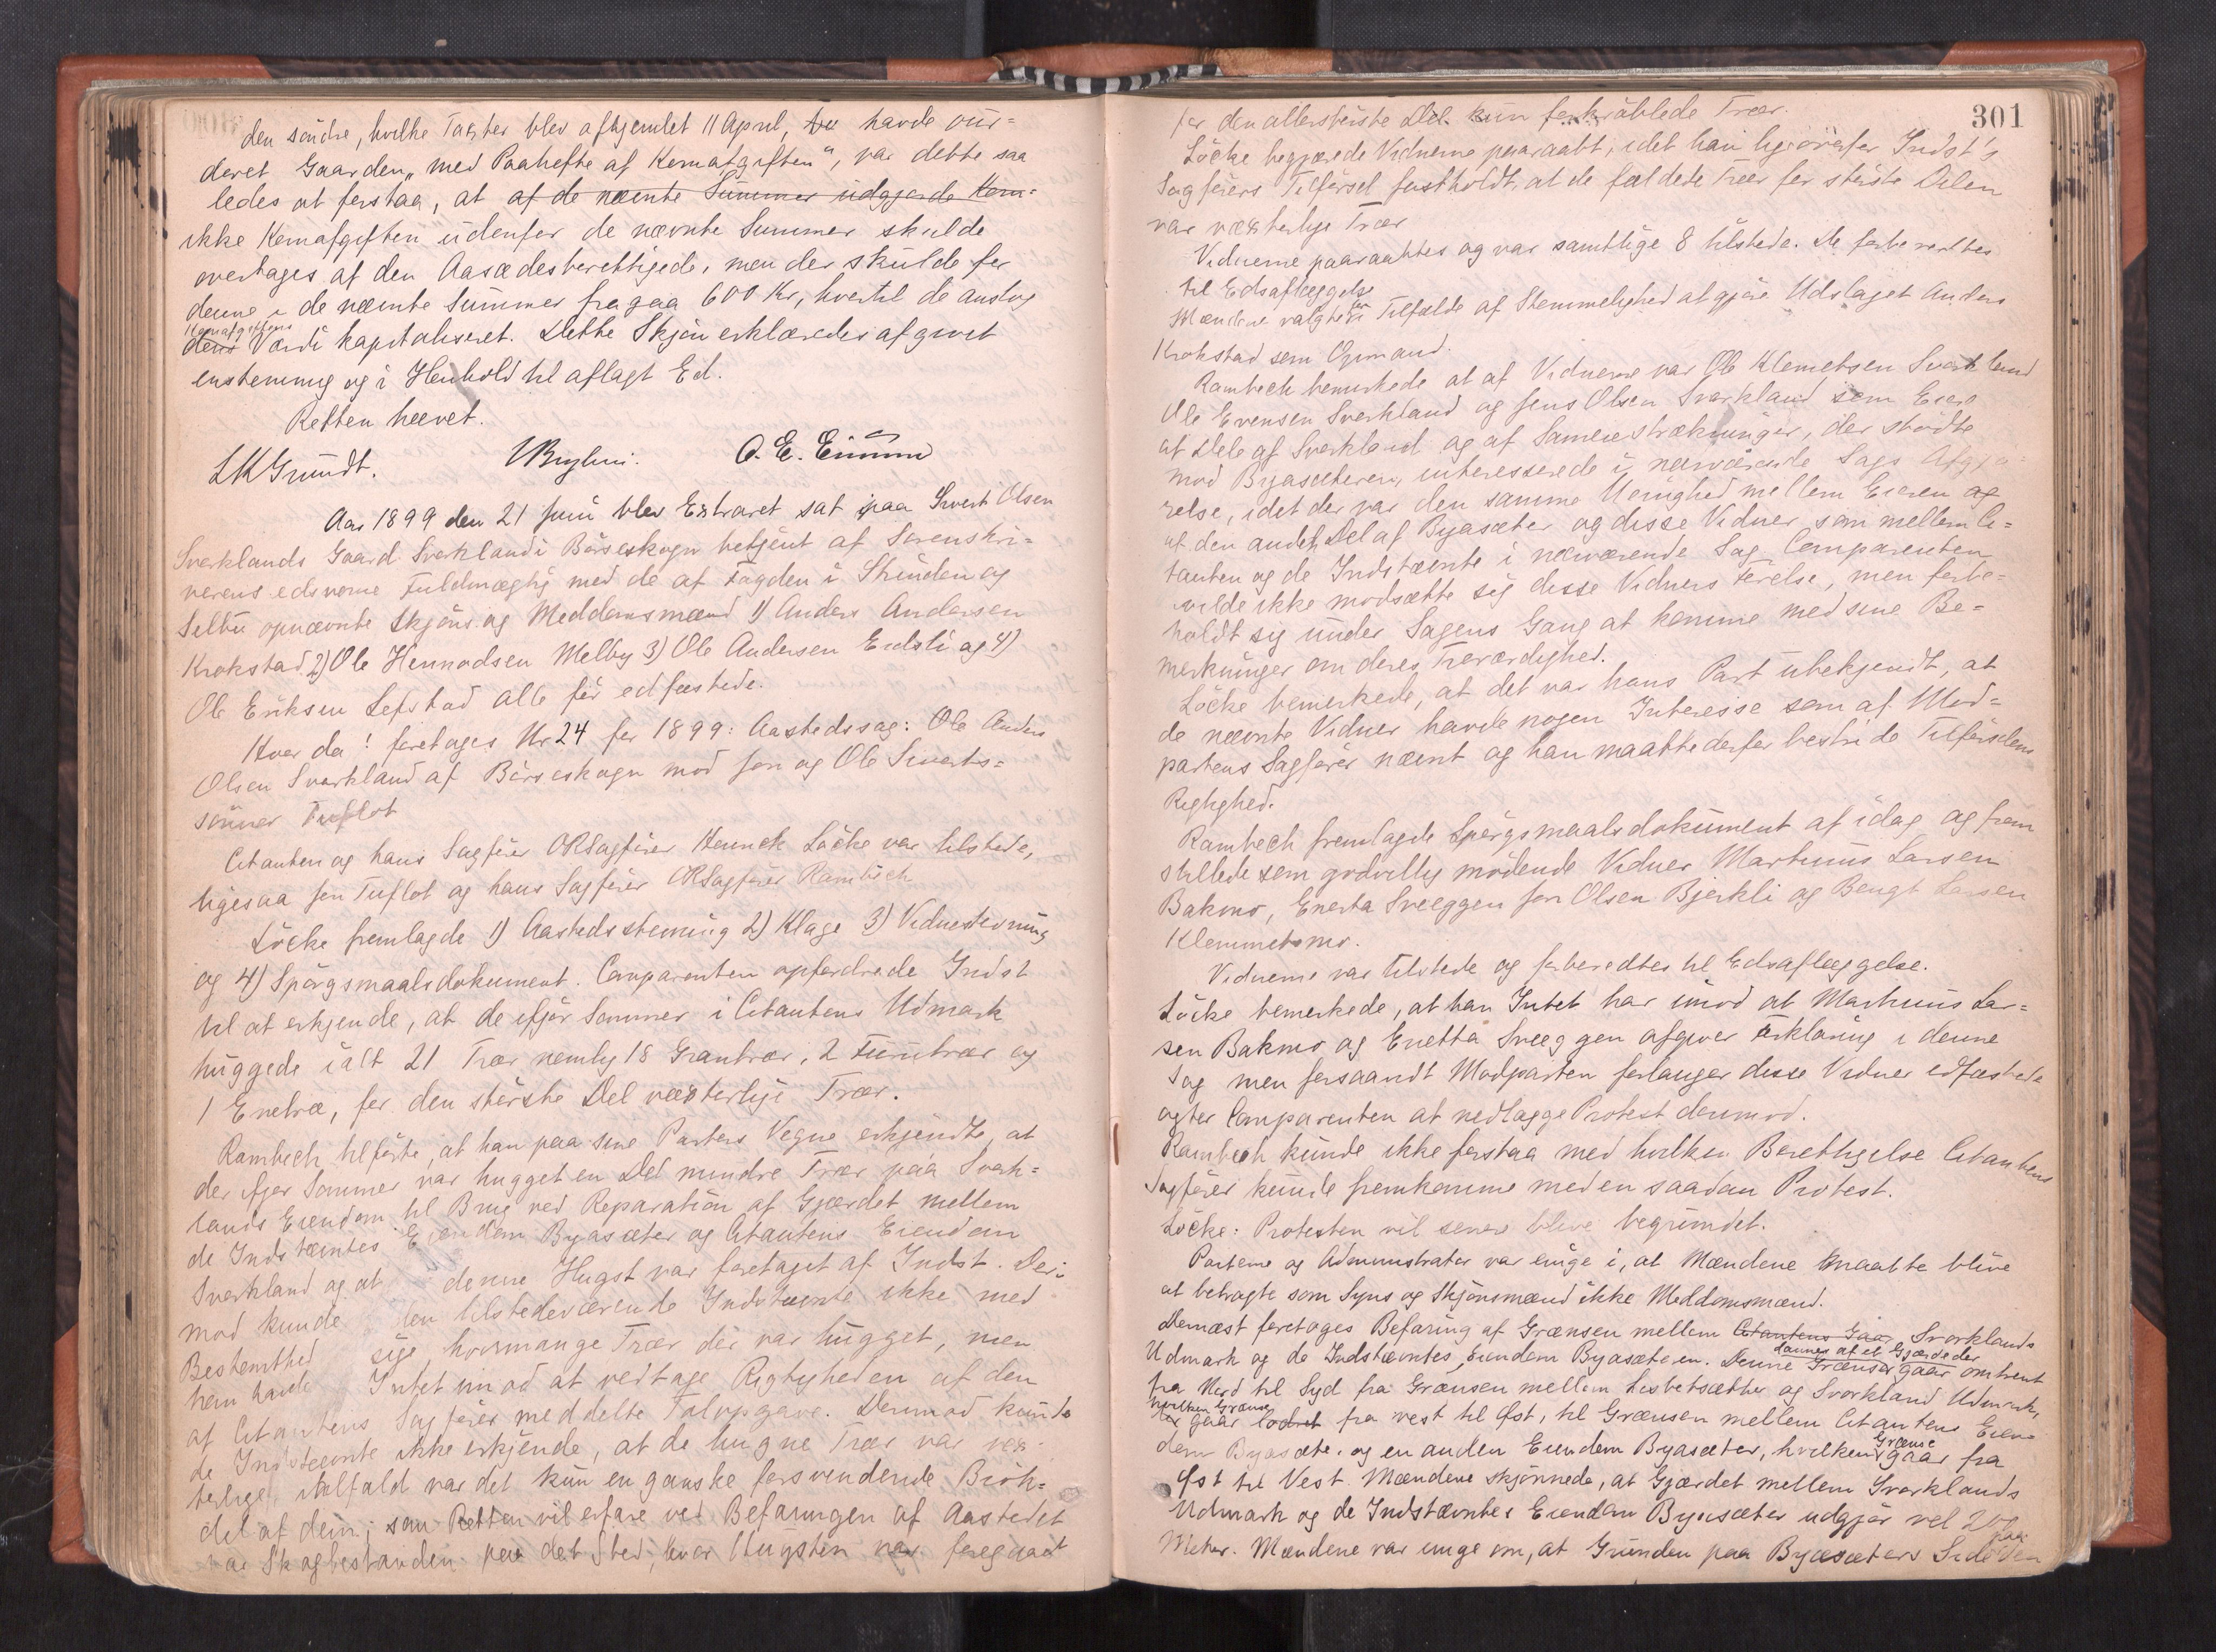 den søndre, hvilke Taxter blev afhjemlet 11 April, havde vur=
deret Gaarden "med Paahefte af Kornafgiften", var dette saa
ledes at forstaa, at af de nævnte Summer udgjorde Korn=
ikke Kornafgiften udenfor de nævnte Summer skulde
overtages af den Aasædesberettigede, men der skulde for
denne i de nævnte Summer fragaa 600 Kr, hvortil de anslog
Kornafgiftens
dens Værdi kapitaliseret. Dette Skjøn erklæredes afgivet
enstemmig og i Henhold til aflagt Ed.
Retten hævet.
LKGrundt. O. E.
Aar 1899 den 21 Juni blev Extraret sat paa Sivert Olsen
Svorklands Gaard Svorkland i Børseskogn betjent af Sorenskri=
verens edsvorne Fuldmægtig med de af Fogden i Strinden og
Selbu opnævnte Skjøns og Meddomsmænd 1) Anders Andersen
Krokstad 2) Ole Hemmodsen Melby 3) Ole Andersen Eidsli og 4)
Ole Eriksen Lefstad alle før edfæstede.
Hvor da! foretoges Nr 24 for 1899: Aastedssag: Ole Anders
Olsen Svorkland af Børseskogn mod Jon og Ole Siverts=
sønner Tuflot
Citanten og hans Sagfører ORSagfører Henrik Løcke var tilstede,
ligesaa Jon Tuflot og hans Sagfører ORSagfører Rambech
Løcke fremlagde 1) Aastedsstevning 2) Klage 3) Vidnestevning
og 4) Spørgsmaalsdokument. Comparenten opfordrede Indst
til at erkjende, at de ifjor Sommer i Citantens Udmark
huggede ialt 21 Trær nemlig 18 Grantrær, 2 Furutrær og
1 Enetræ, for den største Del væxterlige Trær.
Rambech tilførte, at han paa sine Parters Vegne erkjendte, at
der ifjor Sommer var hugget en Del mindre Trær paa Svork=
lands Eiendom til Brug ved Reparation af Gjærdet mellem
de Indstævntes Eiendom Byasæter og Citantens Eiendom
Svorkland og at denne Hugst var foretaget af Indst. Der=
mod kunde den tilstedeværende Indstævnte ikke med
Bestemthed sige hvormange Trær der var hugget, men
han havde Intet imod at vedtage Rigtigheden af den
af Citantens Sagfører meddelte Talopgave. Derimod kunde
de Indstævnte ikke erkjende, at de hugne Trær var væx=
terlige, ialfald var det kun en ganske forsvindende Brøk=
del af dem; som Retten vil erfare ved Befaringen af Aastedet
var Skogbestanden paa det Sted, hvor Hugsten var foregaaet
301
for den allerstørste Del kun forkrøblede Trær.
Løcke begjærede Vidnerne paaraabt, idet han ligeoverfor Indst's
Sagførers Tilførsel fastholdt, at de fældede Trær for største Delen
var væxterlige Trær
Vidnerne paaraabtes og var samtlige 8 tilstede. De forberedtes
til Edsaflæggelse
Mændene valgte for Tilfælde af Stemmelighed at gjøre Udslaget Anders
Krokstad som Opmand.
Rambech bemerkede at af Vidnerne var Ole Klemetsen Svorkland
Ole Evensen Svorkland og Jens Olsen Svorkland som Eiere
at Dele af Svorkland og af Sameiestrækninger, der stødte
mod Byasæteren, interesserede i nærværende Sags Afgjø=
relse, idet der var den samme Uenighed mellem Eieren og
af den anden Del af Byasæter og disse Vidner som mellem Ci=
tanten og de Indstævnte i nærværende Sag. Comparenten
vilde ikke modsætte sig disse Vidners Førelse, men forbe=
holdt sig under Sagens Gang at komme med sine Be=
merkninger om deres Troværdighed.
Løcke bemerkede, at det var hans Part ubekjendt, at
de nævnte Vidner havde nogen Interesse som af Mod=
partens Sagfører nævnt og han maatte derfor bestride Tilførselens
Rigtighed.
Rambech fremlagde Spørgsmaalsdokument af idag og frem
stillede som godvillig mødende Vidner Martinus Larsen
Bakmo, Enerta Sveeggen Jon Olsen Bjerkli og Bengt Larsen
Klemmetsmo.
Vidnerne var tilstede og forberedtes til Edsaflæggelse.
Løcke bemerkede, at han Intet har imod at Martinus Lar=
sen Bakmo og Enetta Sveeggen afgiver Erklæring i denne
Sag men forsaavidt Modparten forlanger disse Vidner edfæstede
agter Comparenten at nedlægge Protest derimod.
Rambech kunde ikke forstaa med hvilken Berettigelse Citantens
Sagfører kunde fremkomme med en saadan Protest.
Løcke: Protesten vil senere blive begrundet.
Parterne og Administrator var enige i, at Mændene maatte blive
at betragte som Syns og Skjønsmænd ikke Meddomsmænd.
Dernæst foretoges Befaring af Grænsen mellem Citantens Gaar Svorklands
Udmark og de Indstævntes Eiendom Byasæteren. Denne Grænse dannes af et Gjærde der gaar omtrent
fra Nord til Syd fra Grænsen mellem og Svorkland Udmark,
hvilken Grænse
gaar lodret fra vest til Øst, til Grænsen mellem Citantens Eien=
dom Byasæter og en anden Eiendom Byasæter, hvilken Grænse gaar fra
Øst til Vest. Mændene skjønnede, at Gjærdet mellem Svorklands
Udmark og de Indstævntes Eiendom Byasæter udgjør vel 200
Meter. Mændene var enige om, at Grunden paa Byasæters Side